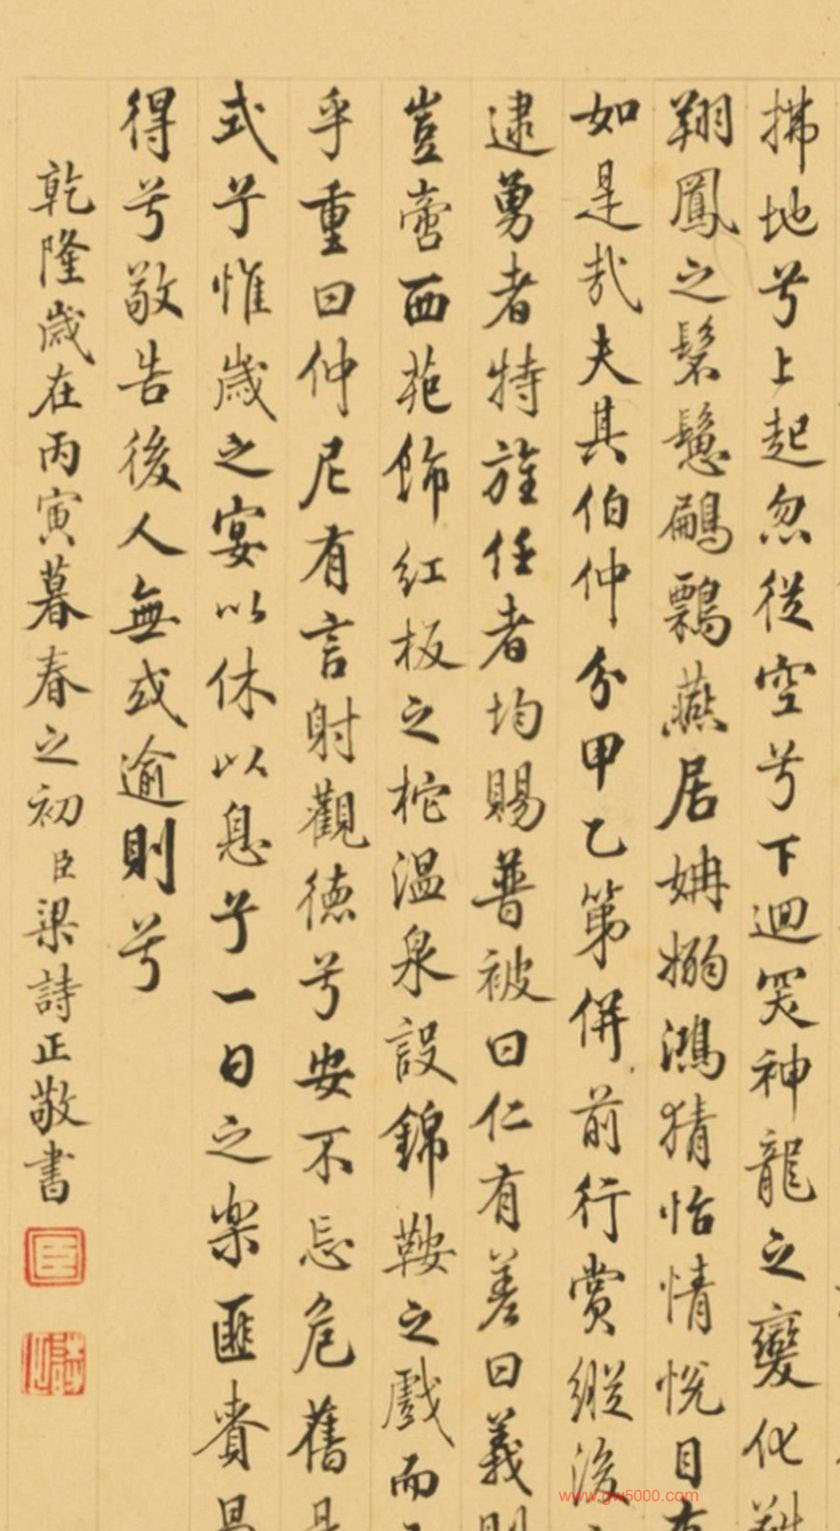 拂地兮上起忽從空兮下迴罙神龍之變化
翔鳳之髤鬆鸓鸘燕居姌搦鴻猜怡情悅目有
如是哉夫其伯仲分甲乙第併前行賞縱後
逮勇者特旌任者均賜普被曰仁有差曰義則
豈啻西苑飾紅板之柁溫泉設錦鞍之戲而
乎重曰仲尼有言射觀德兮安不忘危舊是
式兮惟歲之宴以休以息兮一日之樂匪貴
得兮敬告後人無或逾則兮
乾隆歲在丙寅暮春之初臣梁詩正敬書
臣
www.gw5000.com